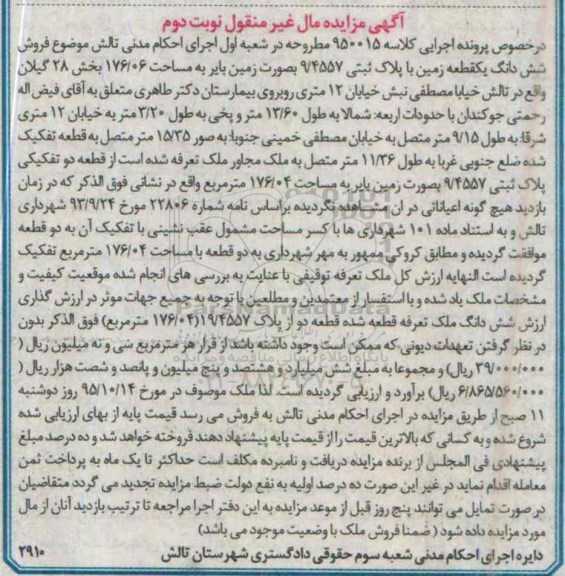 آگهی مزایده مال غیر منقول نوبت دوم
درخصوص پرونده اجرایی کلاسه ۹۵۰۰۱۵ مطروحه در شعبه اول اجرای احکام مدنی تالش موضوع فروش
شش دانگ یکقطعه زمین با پلاک ثبتی ۹/۴۵۵۷ بصورت زمین بایر به مساحت ۱۷۶/۰۶ بخش ۲۸ گیلان
واقع در تالش خیابا مصطفی نبش خیابان ۱۲ متری روبروی بیمارستان دکتر طاهری متعلق به آقای فیض اله
رحمتی جوکندان با حدودات اربعه: شمالا به طول ۱۳/۶۰ متر و پخی به طول ۳/۲۰ متر به خیابان ۱۲ متری
شرقا: به طول ۹/۱۵ متر متصل به خیابان مصطفی خمینی جنوبا: به صور ۱۵/۳۵ متر متصل به قطعه تفکیک
شده ضلع جنوبی غربا به طول ۱۱/۳۶ متر متصل به ملک مجاور ملک تعرفه شده است از قطعه دو تفکیکی
پلاک ثبتی ۹/۴۵۵۷ بصورت زمین بایر به مساحت ۱۷۶/۰۴ مترمربع واقع در نشانی فوق الذکر که در زمان
بازدید هیچ گونه اعیاناتی در ان مشاهده نگردیده براساس نامه شماره ۲۲۸۰۶ مورخ ۹۳/۹/۲۴ شهرداری
تالش و به استناد ماده ۱۰۱ شهرداری ها با کسر مساحت مشمول عقب نشینی با تفکیک آن به دو قطعه
موافقت گردیده و مطابق کروکی ممهور به مهر شهرداری به دو قطعه با مساحت ۱۷۶/۰۴ مترمربع تفکیک
گردیده است النهایه ارزش کل ملک تعرفه توقیفی با عنایت به بررسی های انجام شده موقعیت کیفیت و
مشخصات ملک یاد شده و با استفسار از معتمدین و مطلعین با توجه به جمیع جهات موثر در ارزش گذاری
ارزش شش دانگ ملک تعرفه قطعه شده قطعه دو از پلاک ۱۹/۴۵۵۷(۱۷۶/۰۴ مترمربع) فوق الذکر بدون
در نظر گرفتن تعهدات دیونی که ممکن است وجود داشته باشد از قرار هر مترمربع سی و نه میلیون ریال (
۳۹/۰۰۰/۰۰۰ ریال) و مجموعا به مبلغ شش میلیارد و هشتصد و پنج میلیون و پانصد و شصت هزار ریال (
۶/۸۶۵/۵۶۰/۰۰۰ ریال) برآورد و ارزیابی گردیده است. لذا ملک موصوف در مورخ ۹۵/۱۰/۱۴ روز دوشنبه
۱۱ صبح از طریق مزایده در اجرای احکام مدنی تالش به فروش می رسد قیمت پایه از بهای ارزیابی شده
شروع شده و به کسانی که بالاترین قیمت را از قیمت پایه پیشنهاد دهند فروخته خواهد شد و ده درصد مبلغ
پیشنهادی فی المجلس از برنده مزایده دریافت و نامبرده مکلف است حداکثر تا یک ماه به پرداخت ثمن
معامله اقدام نماید در غیر این صورت ده درصد اولیه به نفع دولت ضبط مزایده تجدید می گردد متقاضیان
در صورت تمایل می توانند پنج روز قبل از موعد مزایده به این دفتر اجرا مراجعه تا ترتیب بازدید آنان از مال
مورد مزایده داده شود ( ضمنا فروش ملک با وضعیت موجود می باشد)
دایره اجرای احکام مدنی شعبه سوم حقوقی دادگستری شهرستان تالش ۲۹۱۰